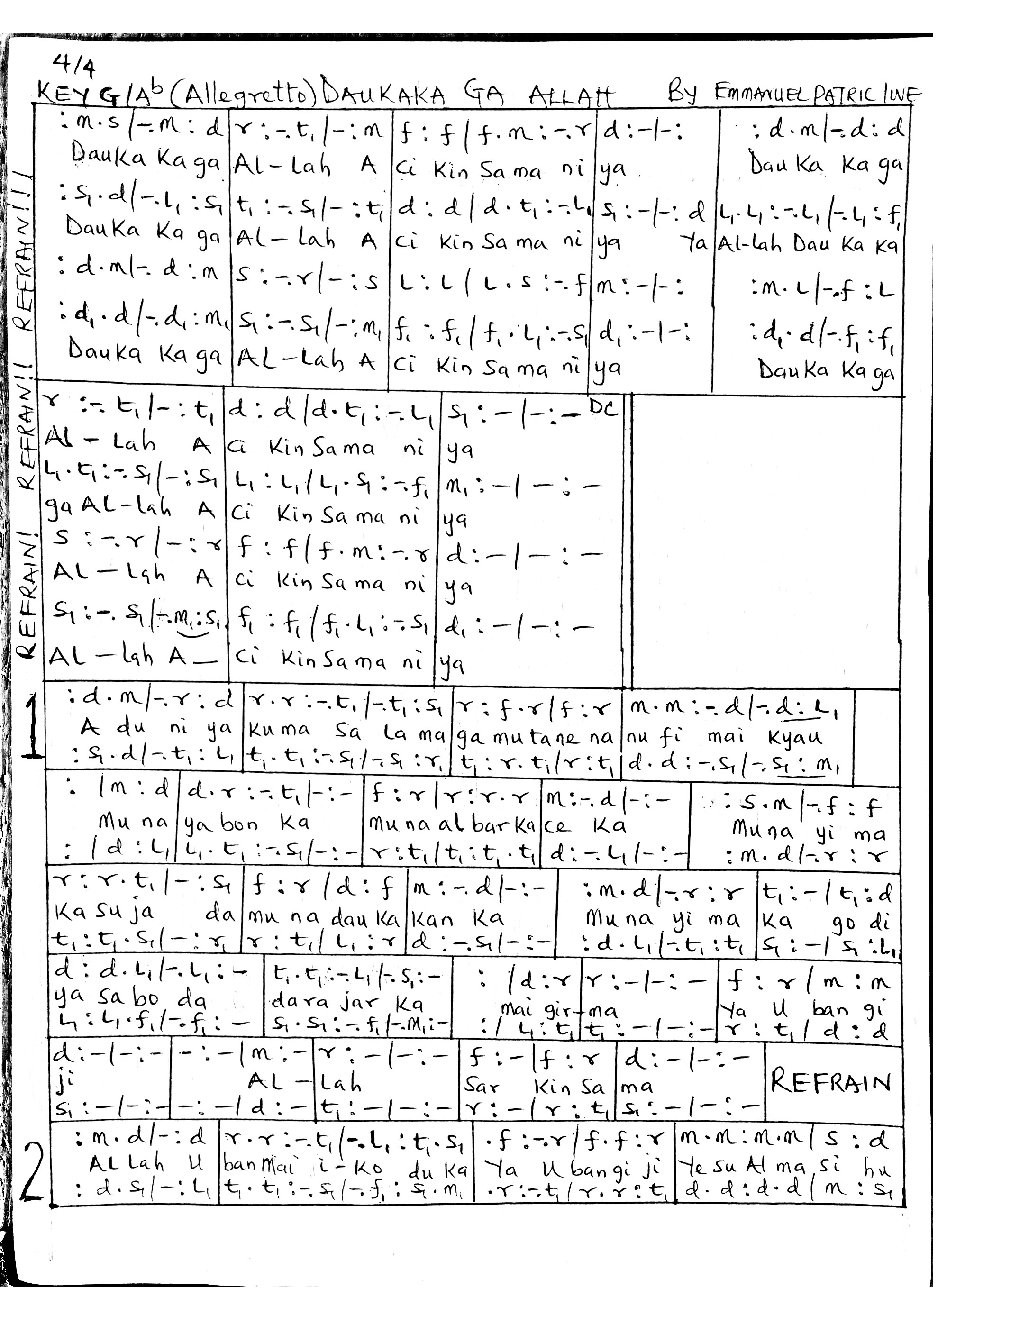 4/4
KEY G/Ab (Allegretto) DAUKAKA GA ALLAH By EMMANUEL PATRIC IWE
REFRAIN! REFRAIN!! REFRAIN!!!
:m.s/-.m:d | r:-.t₁/-:m | f:f/f.m:-.r | d:-/-: | :d.m/-.d:d
Dauka Ka ga | AL-Lah A | Ci Kin Sa ma ni | ya | Dau Ka Ka ga
:s₁.d/-.L₁:s₁ | t₁:-.s₁/-:t₁ | d:d/d.t₁:-.L₁ | s₁:-/-:d | L₁.L₁:-.L₁/-.L₁:f₁
DauKa Ka ga | AL-Lah A | ci Kin Sa ma ni | ya Ya | Al-lah Dau Ka Ka
:d.m/-.d:m | s:-.r/-:s | L:L/L.s:-.f | m:-/-: | :m.L/-.f:L
:d₁.d/-.d₁:m₁ | s₁:-.s₁/-:m₁ | f₁:f₁/f₁.L₁:-.s₁ | d₁:-/-: | :d₁.d/-.f₁:f₁
DauKa Ka ga | AL-Lah A | Ci Kin Sa ma ni | ya | DauKa Ka ga
r:-.t₁/-:t₁ | d:d/d.t₁:-.L₁ | s₁:-/-:- DC
AL-Lah A | Ci Kin Sa ma ni | ya
L₁.t₁:-.s₁/-:s₁ | L₁:L₁/L₁.s₁:-.f₁ | m₁:-/-:-
ga AL-lah A | Ci Kin Sa ma ni | ya
s:-.r/-:r | f:f/f.m:-.r | d:-/-:-
AL-Lah A | Ci Kin Sa ma ni | ya
s₁:-.s₁/-.m₁:s₁ | f₁:f₁/f₁.L₁:-.s₁ | d₁:-/-:-
AL-lah A- | Ci Kin Sa ma ni | ya
1
:d.m/-.r:d | r.r:-.t₁/-.t₁:s₁ | r:f.r/f:r | m.m:-.d/-.d:L₁
A du ni ya | Ku ma Sa La ma | ga mu tane na | nu fi mai Kyau
:s₁.d/-.t₁:L₁ | t₁.t₁:-.s₁/-.s₁:r₁ | t₁:r.t₁/r:t₁ | d.d:-.s₁/-.s₁:m₁
: /m:d | d.r:-.t₁/-:- | f:r/r:r.r | m:-.d/-:- | :s.m/-.f:f
Mu na | ya bon Ka | Mu na al bar Ka | ce Ka | Mu na yi ma
: /d:L₁ | L₁.t₁:-.s₁/-:- | r:t₁/t₁:t₁.t₁ | d:-.L₁/-:- | :m.d/-.r:r
r:r.t₁/-:s₁ | f:r/d:f | m:-.d/-:- | :m.d/-.r:r | t₁:-/t₁:d
Ka su ja da | mu na dau Ka | Kan Ka | Mu na yi ma | Ka go di
t₁:t₁.s₁/-:r₁ | r:t₁/L₁:r | d:-.s₁/-:- | :d.L₁/-.t₁:t₁ | s₁:-/s₁:L₁
d:d.L₁/-.L₁:- | t₁.t₁:-.L₁/-.s₁:- | : /d:r | r:-/-:- | f:r/m:m
ya sa bo da | dara jar Ka | mai gir- | ma | Ya U ban gi
L₁:L₁.f₁/-.f₁:- | s₁.s₁:-.f₁/-.m₁:- | : /L₁:t₁ | t₁:-/-:- | r:t₁/d:d
d:-/-:- | -:-/m:- | r:-/-:- | f:-/f:r | d:-/-:- | REFRAIN
ji | AL- | Lah | Sar Kin Sa | ma
s₁:-/-:- | -:-/d:- | t₁:-/-:- | r:-/r:t₁ | s₁:-/-:-
2
:m.d/-:d | r.r:-.t₁/-.L₁:t₁.s₁ | .f:-.r/f.f:r | m.m:m.m/s:d
AL Lah U | ban Mai i-Ko du Ka | Ya U ban gi ji | Ye su Al ma si hu
:d.s₁/-:L₁ | t₁.t₁:-.s₁/-.f₁:s₁.m₁ | .r:-.t₁/r.r:t₁ | d.d:d.d/m:s₁